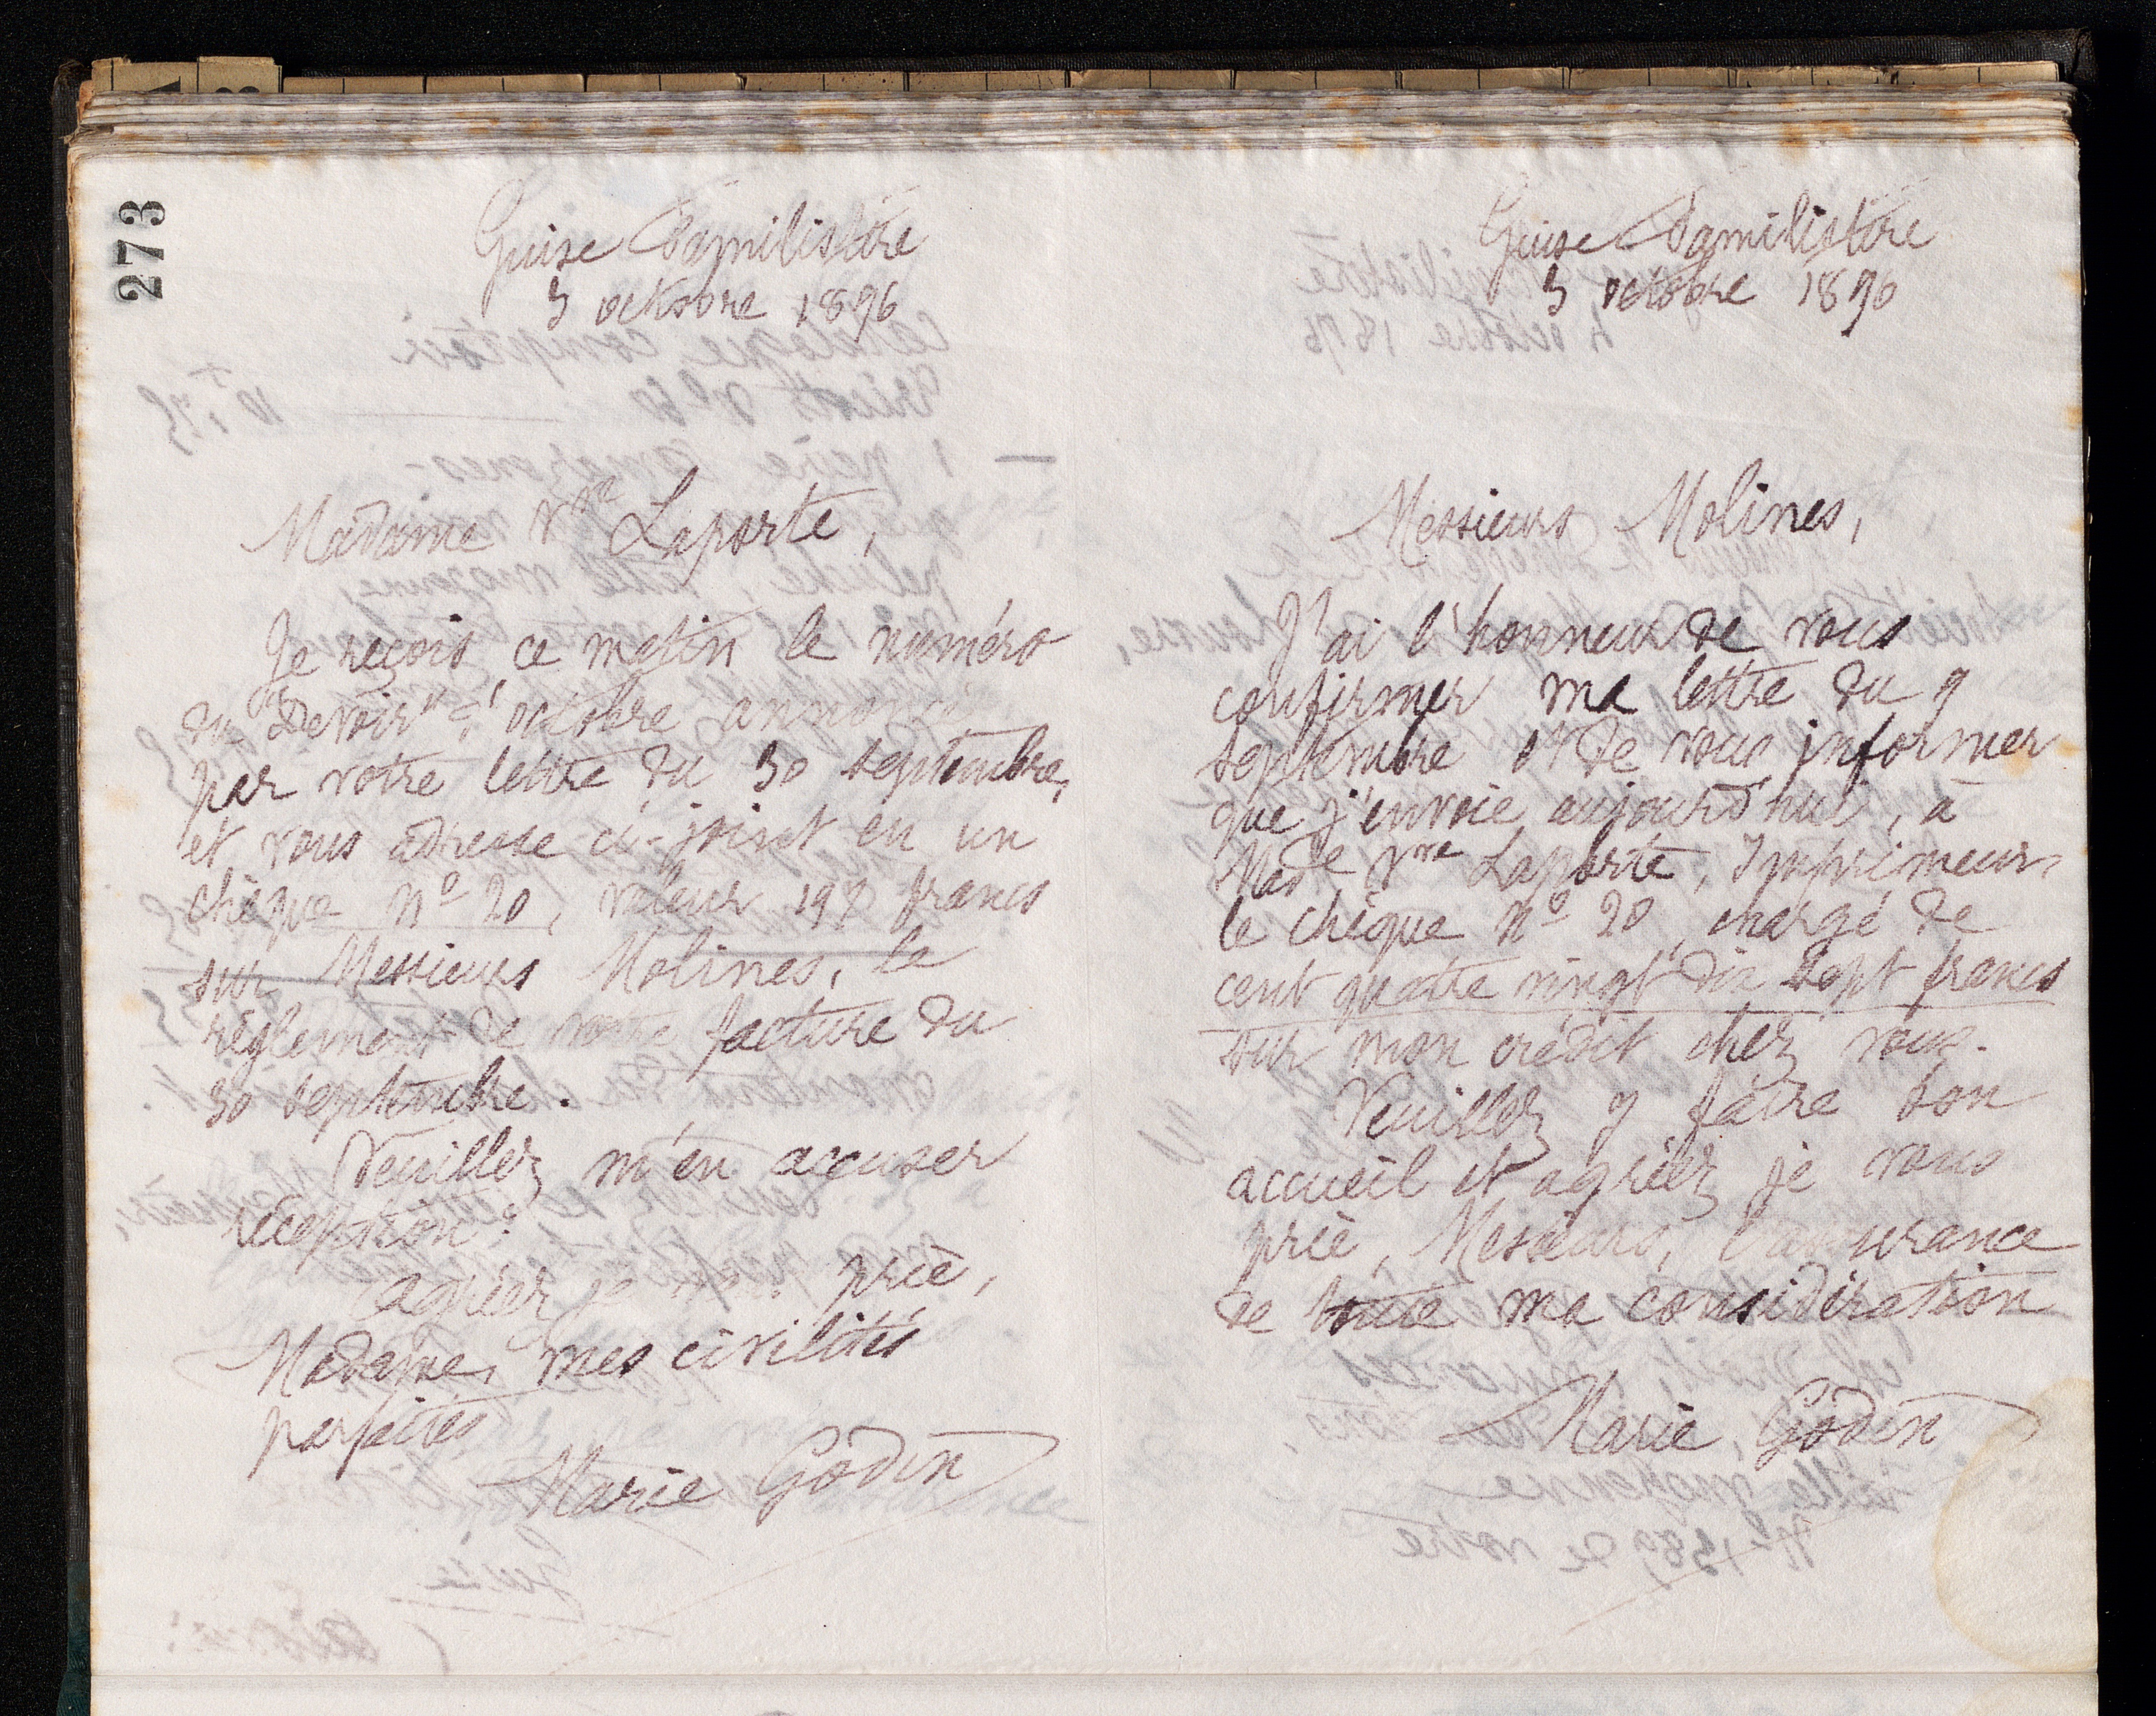 273
Guise Familistère
3 octobre 1896
Madame Vve Laporte,
Je reçois ce matin le numéro
du "Devoir" octobre annoncé
par votre lettre du 30 septembre,
et vous adresse ci-joint en un
chèque No 20, valeur 197 francs
sur Messieurs Molines, le
règlement de votre facture du
30 septembre.
Veuillez m'en accuser
réception.
agréez je vous prie,
Madame, mes civilités
parfaites
Marie Godin
Guise Familistère
3 octobre 1896
Messieurs Molines,
J'ai l'honneur de vous
confirmer ma lettre du 9
septembre et de vous informer
que j'envoie aujourd'hui, à
Made Vve Laporte, Imprimeur,
le chèque No 20, chargé de
cent quatre vingt dix sept francs
sur mon crédit chez vous.
Veuillez y faire bon
accueil et agréez je vous
prie, Messieurs, l'assurance
de toute ma considération
Marie Godin